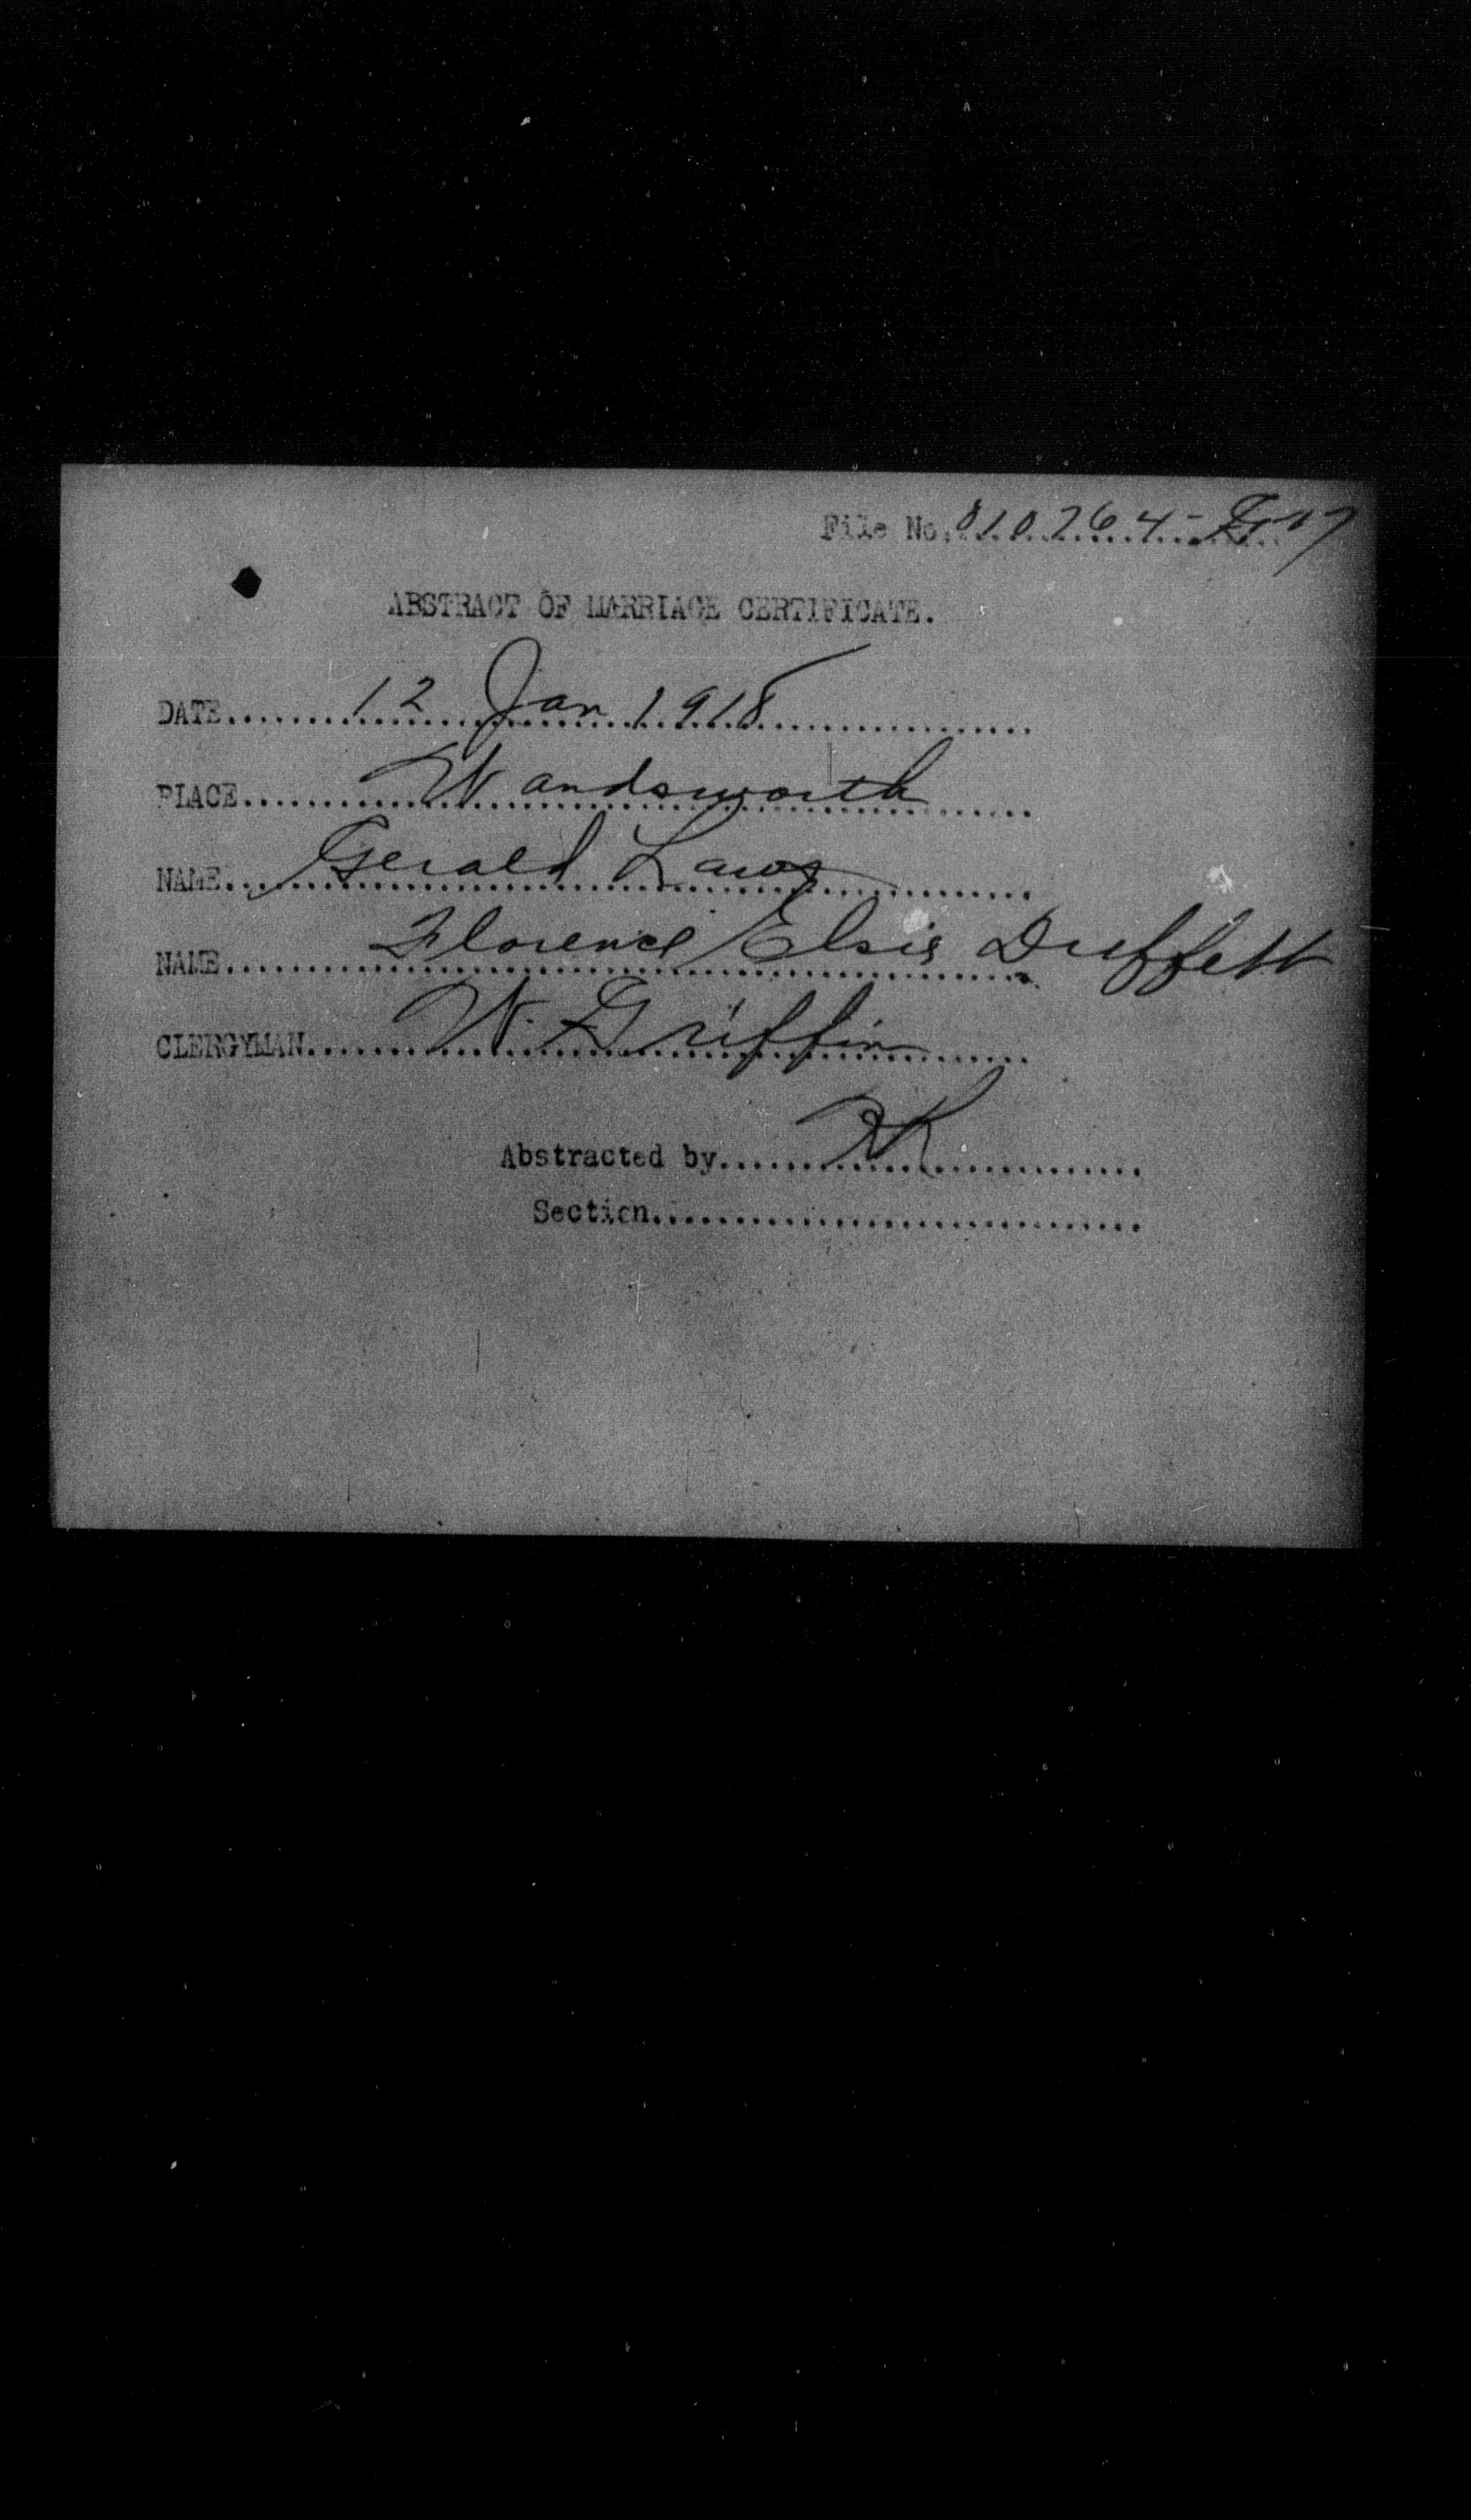 File No. 010264-
ABSTRACT OF MARRIAGE CERTIFICATE.
DATE 12 Jan 1918
PLACE Wandsworth
NAME Gerald Laws
NAME Florence Elsie Duffett
CLERGYMAN W. Griffin
Abstracted by
Section